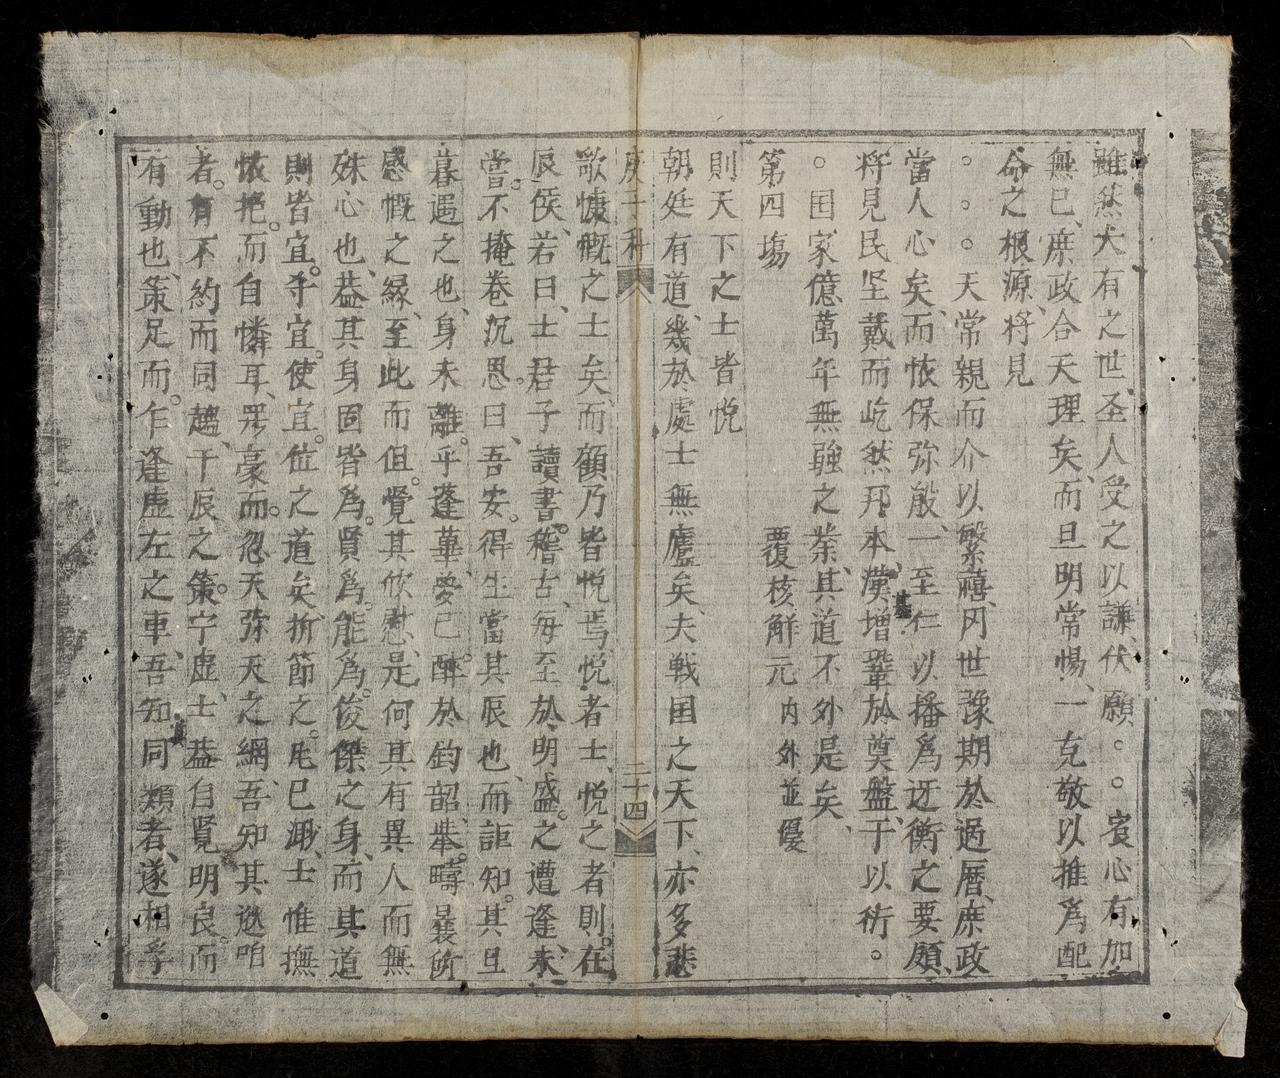 雖然大有之世、圣人受之以謙、伏願。。宸心有加
無已、庶政合天理矣、而旦明常惕、一克敬以推爲配
命之根源、将見
。。。天常親而介以繁禧、冈世豫期於過曆、庶政
當人心矣、而恢保弥殷、一至仁以播爲迓衡之要、願、
将見民坚戴而屹然邦本、漢增鞏於奠盤、于以衍。
。国家億萬年無疆之荣、其道不外是矣、
第四塲　覆核解元 内外並優
則天下之士皆悦
朝廷有道、幾於處士無廬矣、夫戦国之天下、亦多悲
庚子科 二十四
歌慷慨之士矣、而顧乃皆悦焉、悦者士、悦之者則在
辰侯、若曰、士君子讀書。稽古、每至於明盛。之遭逢、未
嘗。不掩卷沉思。曰、吾安。得生當其辰也、而詎知。其旦
暮遇之也、身未離。乎蓬蓽、夢已。醉於鈞韶、牽。疇曩所
感慨之緣、至此而但。覺其欣慰、是何其有異人而無
殊心也、益其身固皆爲。賢爲。能爲。俊傑之身、而其道
則皆宜。乎宜。使宜。位之道矣、折節之。庀已溺、士惟撫
懷抱。而自憐耳、罘豪而。忽天弥天之網、吾知其逖咱
者。有不約而同趨、于辰之策。宁虛士、益自覧明良。而
有動也、策足而。乍逢虛左之車、吾知同類者、遂相孚